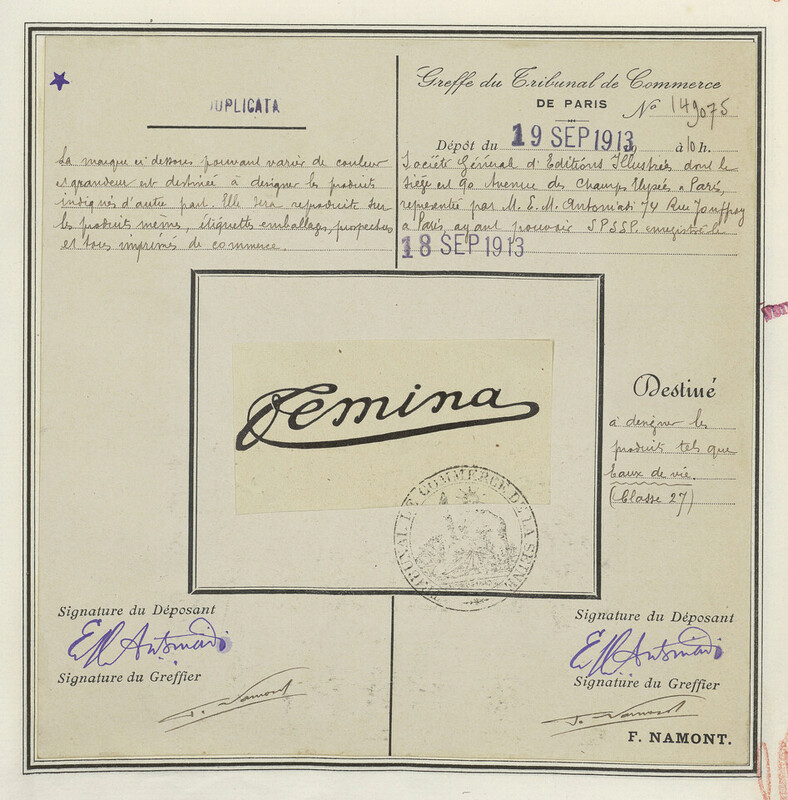 DUPLICATA
La marque ci dessous pouvant varier de couleur
et grandeur est destinée à designer les produits
indiqués d'autre part. Elle sera reproduite sur
les produits mêmes, étiquettes emballages, prospectus
et tous imprimés de commerce.
Greffe du Tribunal de Commerce
DE PARIS
No 149075
Dépôt du 19 SEP 1913, à 10 h.
Société Général d'Editions Illustrés dont le
siège est 90 Avenue des Champs Elysées à Paris,
representée par M. E. M. Antoniadi 74 Rue Jouffroy
à Paris, ayant pouvoir SPSSP. enregistré le
18 SEP 1913
Femina
TRIBUNAL DE COMMERCE DE LA SEINE
Destiné
à designer les
produits tels que
Eaux de vie.
(Classe 27)
Signature du Déposant
E M Antoniadi
Signature du Greffier
F. Namont
Signature du Déposant
E M Antoniadi
Signature du Greffier
F. Namont
F. NAMONT.